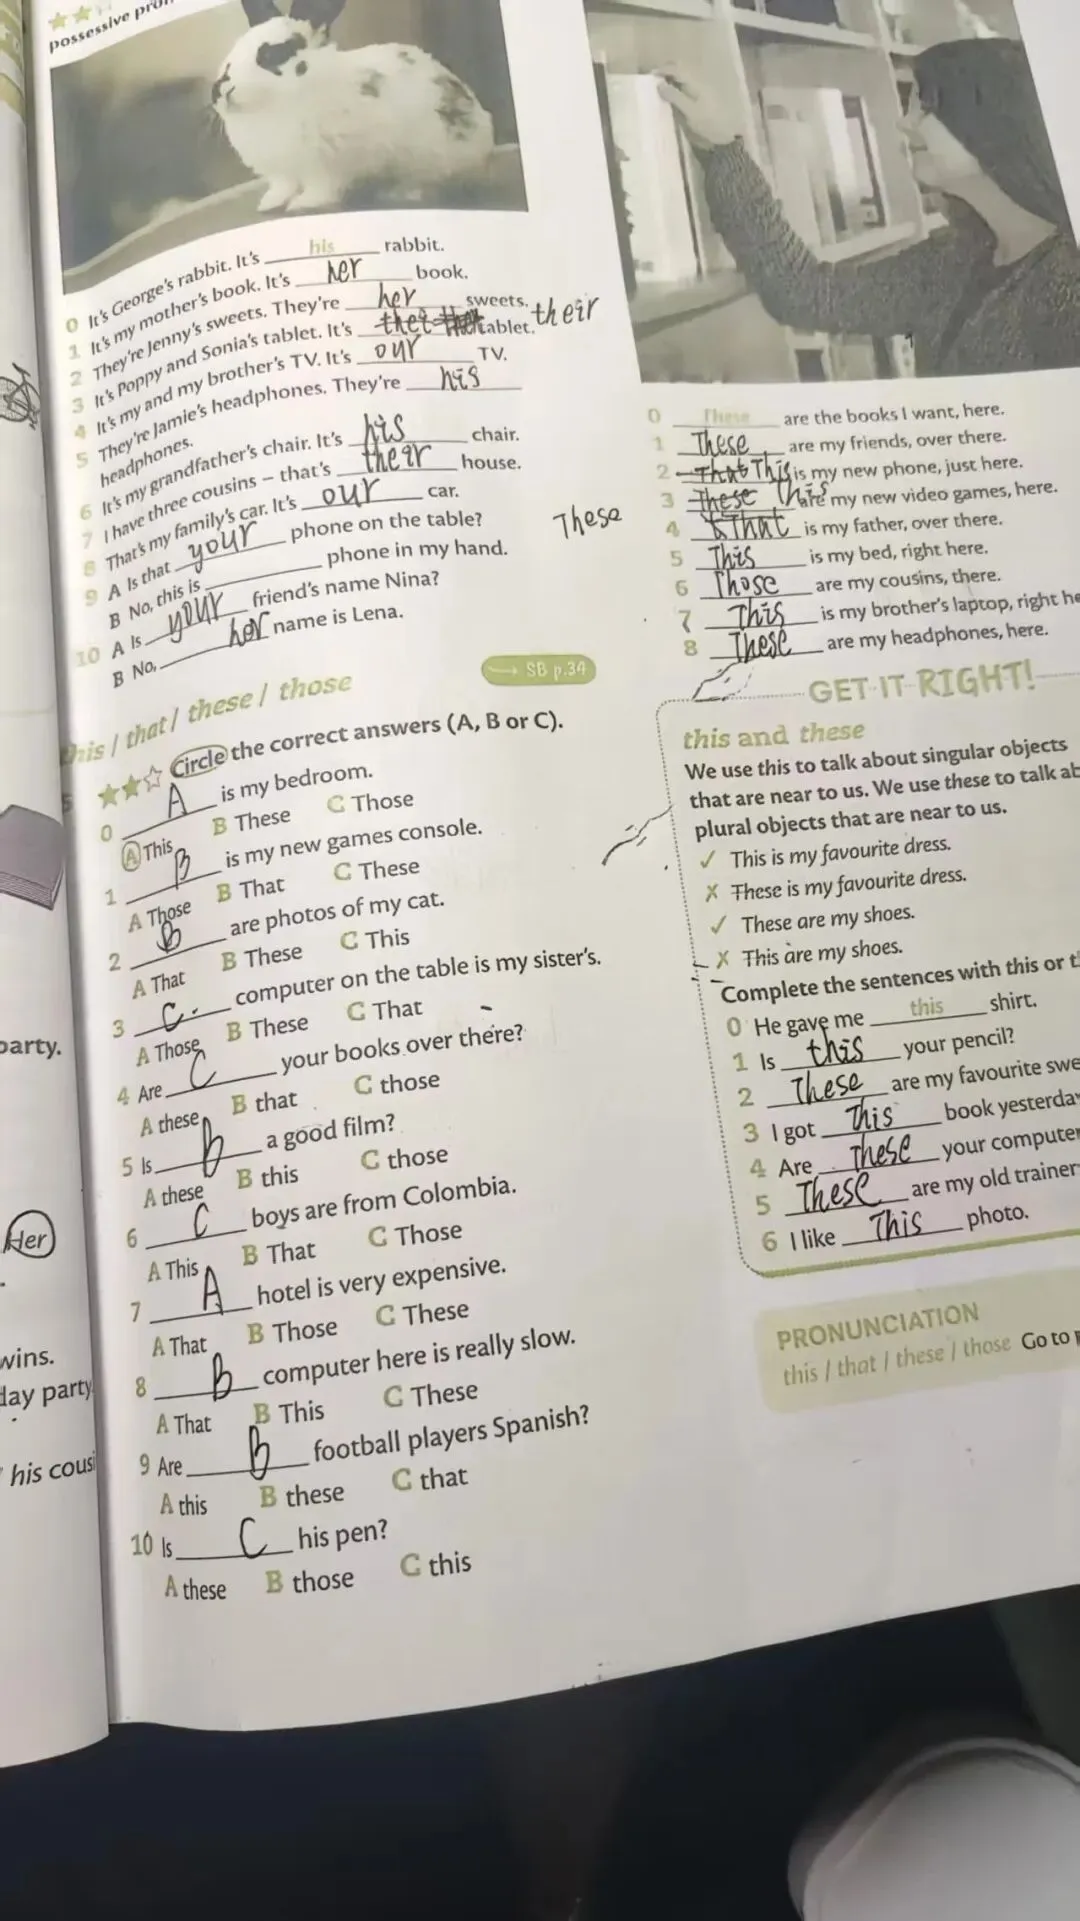 possessive
0 It's George's rabbit. It's his rabbit.
1 It's my mother's book. It's her book.
2 They're Jenny's sweets. They're her sweets.
3 It's Poppy and Sonia's tablet. It's tablet. their
4 It's my and my brother's TV. It's our TV.
5 They're Jamie's headphones. They're his
headphones.
6 It's my grandfather's chair. It's his chair.
7 I have three cousins – that's their house.
8 That's my family's car. It's our car.
9 A Is that your phone on the table?
B No, this is phone in my hand.
10 A Is your friend's name Nina?
B No, her name is Lena.
this / that / these / those
SB p.34
Circle the correct answers (A, B or C).
0 A is my bedroom.
A This B These C Those
1 B is my new games console.
A Those B That C These
2 B are photos of my cat.
A That B These C This
3 C. computer on the table is my sister's.
A Those B These C That
4 Are C your books over there?
A these B that C those
5 Is B a good film?
A these B this C those
6 C boys are from Colombia.
A This B That C Those
7 A hotel is very expensive.
A That B Those C These
8 B computer here is really slow.
A That B This C These
9 Are B football players Spanish?
A this B these C that
10 Is C his pen?
A these B those C this
0 These are the books I want, here.
1 These are my friends, over there.
2 That This is my new phone, just here.
3 These this are my new video games, here.
These
4 That is my father, over there.
5 This is my bed, right here.
6 Those are my cousins, there.
7 This is my brother's laptop, right he
8 These are my headphones, here.
GET IT RIGHT!
this and these
We use this to talk about singular objects
that are near to us. We use these to talk ab
plural objects that are near to us.
✓ This is my favourite dress.
X These is my favourite dress.
✓ These are my shoes.
X This are my shoes.
Complete the sentences with this or t
0 He gave me this shirt.
1 Is this your pencil?
2 These are my favourite swe
3 I got This book yesterda
4 Are These your computer
5 These are my old trainer
6 I like This photo.
PRONUNCIATION
this / that / these / those Go to p
party.
Her
wins.
day party
his cousi